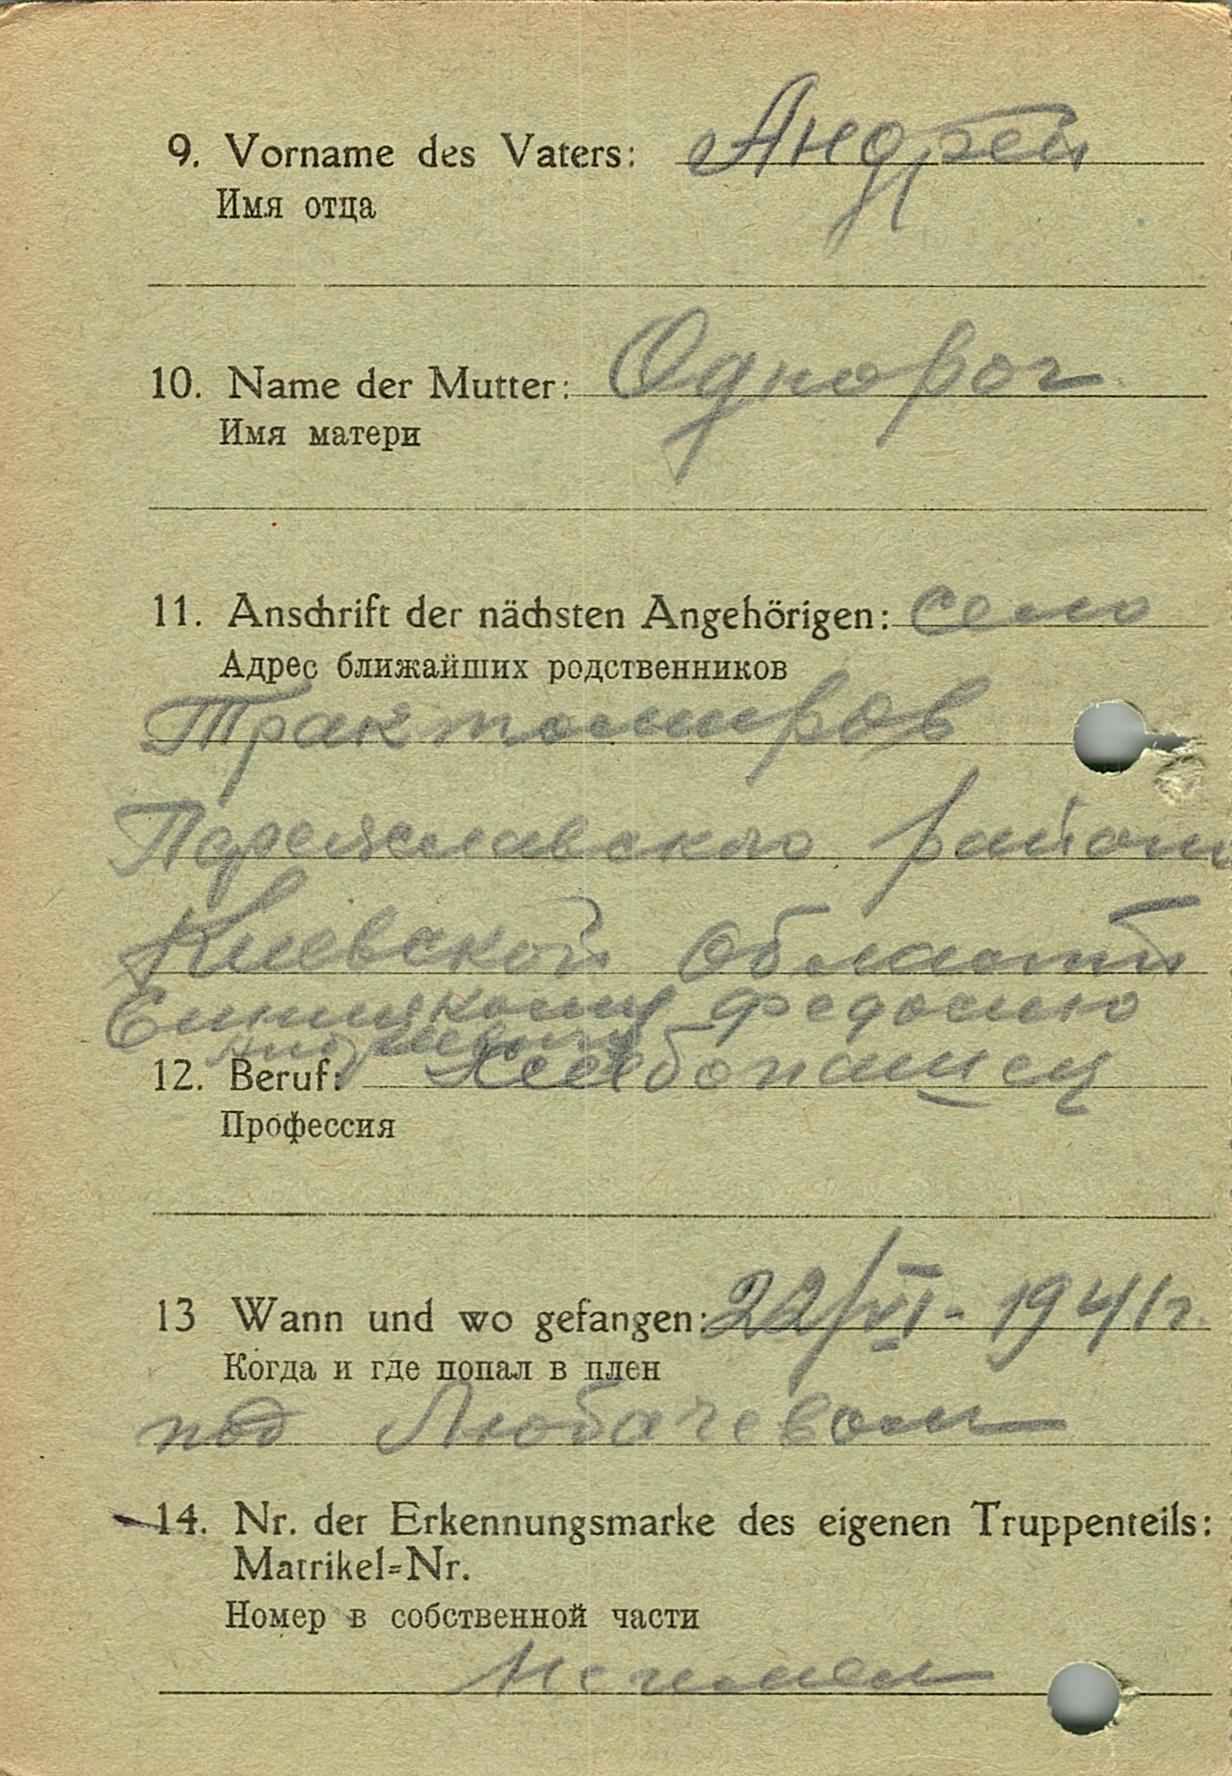 9. Vorname des Vaters: Андрей
Имя отца
10. Name der Mutter: Однорог
Имя матери
11. Anschrift der nächsten Angehörigen: село
Адрес ближайших родственников
Трактомиров
Переяславского района
Киевской области
Федосию
Андреевичу
12. Beruf: Хлебопашец
Профессия
13 Wann und wo gefangen: 22/VI - 1941 г.
Когда и где попал в плен
под Любачевом
14. Nr. der Erkennungsmarke des eigenen Truppenteils:
Matrikel=Nr.
Номер в собственной части
Не имел